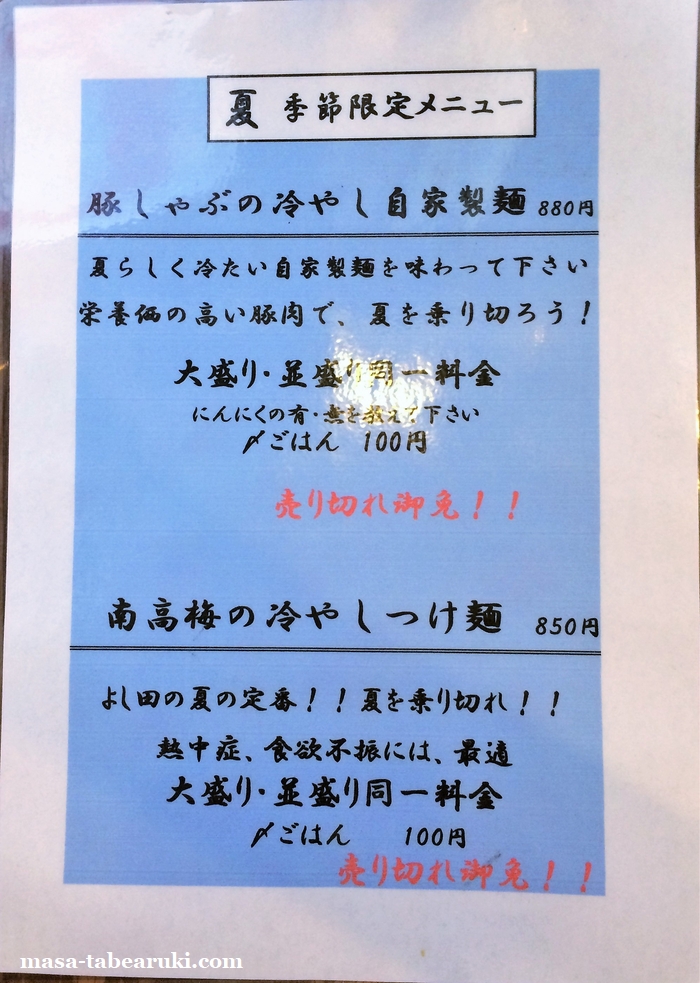 夏 季節限定メニュー
豚しゃぶの冷やし自家製麺 880円
夏らしく冷たい自家製麺を味わって下さい
栄養価の高い豚肉で、夏を乗り切ろう！
大盛り・並盛り同一料金
にんにくの有・無を教えて下さい
〆ごはん 100円
売り切れ御免！！
南高梅の冷やしつけ麺 850円
よし田の夏の定番！！夏を乗り切れ！！
熱中症、食欲不振には、最適
大盛り・並盛り同一料金
〆ごはん 100円
売り切れ御免！！
masa-tabearuki.com